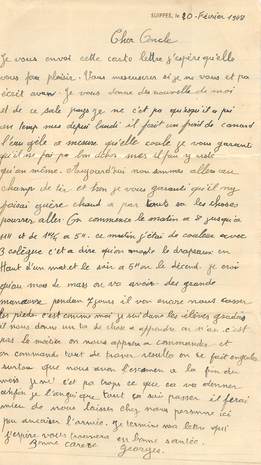 SUIPPES, le 20 - Février 1902
Cher Oncle
Je vous envoi cette carte lettre j'espère qu'elle
vous fera plaisir. Vous m'excuserez si je ne vous et pa
écrit avan. Je vous donne des nouvelle de moi
et de ce sale pays je ne c'et pa qu'isqu'il a pri
en temp mes depui lundi il fait un froid de canard
l'eau gèle a mesure qu'elle coule je vous garanti
qu'il ne fai pa bon dehor mes il fau y resté
qu'an même. Aujourd'hui nou sommes aller au
champ de tir et bon je vous garanti qu'il n'y
faisai guère chaud a par sa les choses
pourrai aller. On commence le matin a 7h jusqu'a
11H et de 1H¼ a 5H. ce matin j'étai de couleur avec
3 colègue c'et a dire qu'on monte le drapeau en
Haut d'un mat et le soir a 5H on le décend. je croi
qu'au moi de mars on va avoir des grande
manœuvre pendan 7 jours il von encore nous casser
les pieds c'est connu moi je sui dans les élèves gradés
il nous donne un ta de chose a apprendre on n'en
pas le métier on nous apprend a commander et
on commande tout de traver
surtou que nous avon l'examen a la fin du
mois je ne c'et pa trop ce que ca va donner
enfin je l'ençai que tout ca sai passer il ferai
mieu de nous laisser chez nous
pui encaiser l'armée. Je termine ma lettre qui
j'espère vous trouvera en bonne santée.
Georges.